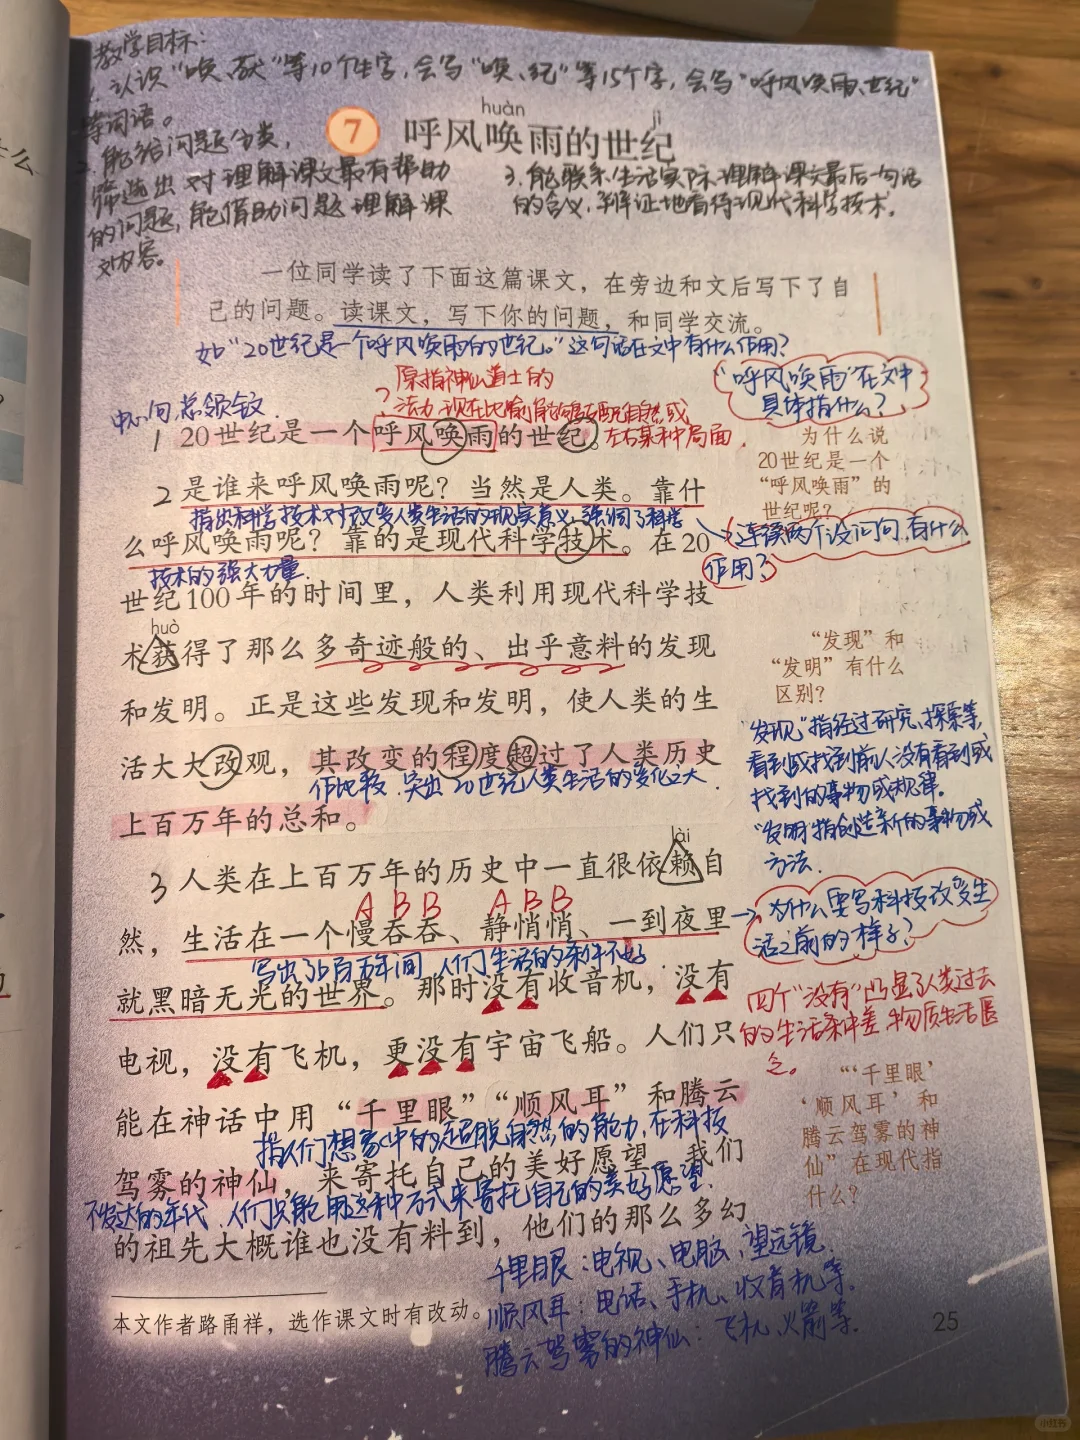 教学目标:
1.认识“唤、厌”等10个生字,会写“唤、纪”等15个字,会写“呼风唤雨、世纪”
等词语。
2.能给问题分类,
筛选出对理解课文最有帮助
的问题,能借助问题理解课
文内容。
3.能联系生活实际理解课文最后一句话
的含义,辩证地看待现代科学技术。
huàn jì
7 呼风唤雨的世纪
一位同学读了下面这篇课文,在旁边和文后写下了自
己的问题。读课文,写下你的问题,和同学交流。
如“20世纪是一个呼风唤雨的世纪。”这句话在文中有什么作用?
原指神仙道士的
法力 现在比喻能够支配自然或
左右某种局面
中心句,总领全文
1 20世纪是一个呼风唤雨的世纪。
“呼风唤雨”在文中
具体指什么?
为什么说
20世纪是一个
“呼风唤雨”的
世纪呢?
2 是谁来呼风唤雨呢?当然是人类。靠什
指出科学技术对改变人类生活的现实意义,强调了科学
么呼风唤雨呢?靠的是现代科学技术。在20
技术的强大力量.
连续两个设问句,有什么
作用?
世纪100年的时间里,人类利用现代科学技
huò
术获得了那么多奇迹般的、出乎意料的发现
和发明。正是这些发现和发明,使人类的生
活大大改观,其改变的程度超过了人类历史
作比较 突出20世纪人类生活的变化之大.
上百万年的总和。
“发现”和
“发明”有什么
区别?
“发现”指经过研究、探索等,
看到或找到前人没有看到或
找到的事物或规律。
“发明”指创造新的事物或
方法.
lài
3 人类在上百万年的历史中一直很依赖自
A B B A B B
然,生活在一个慢吞吞、静悄悄、一到夜里
写出了上百万年间 人们生活的条件不好
就黑暗无光的世界。那时没有收音机,没有
电视,没有飞机,更没有宇宙飞船。人们只
为什么要写科技改变生
活之前的样子?
四个“没有”凸显了人类过去
的生活条件差 物质生活匮
乏。
能在神话中用“千里眼”“顺风耳”和腾云
指人们想象中的超脱自然的能力,在科技
驾雾的神仙,来寄托自己的美好愿望。我们
不发达的年代,人们只能用这种方式来寄托自己的美好愿望.
的祖先大概谁也没有料到,他们的那么多幻
“‘千里眼’
‘顺风耳’和
腾云驾雾的神
仙”在现代指
什么?
千里眼:电视、电脑、望远镜.
顺风耳:电话、手机、收音机等.
腾云驾雾的神仙:飞机、火箭等.
本文作者路甬祥,选作课文时有改动。
25
小红书